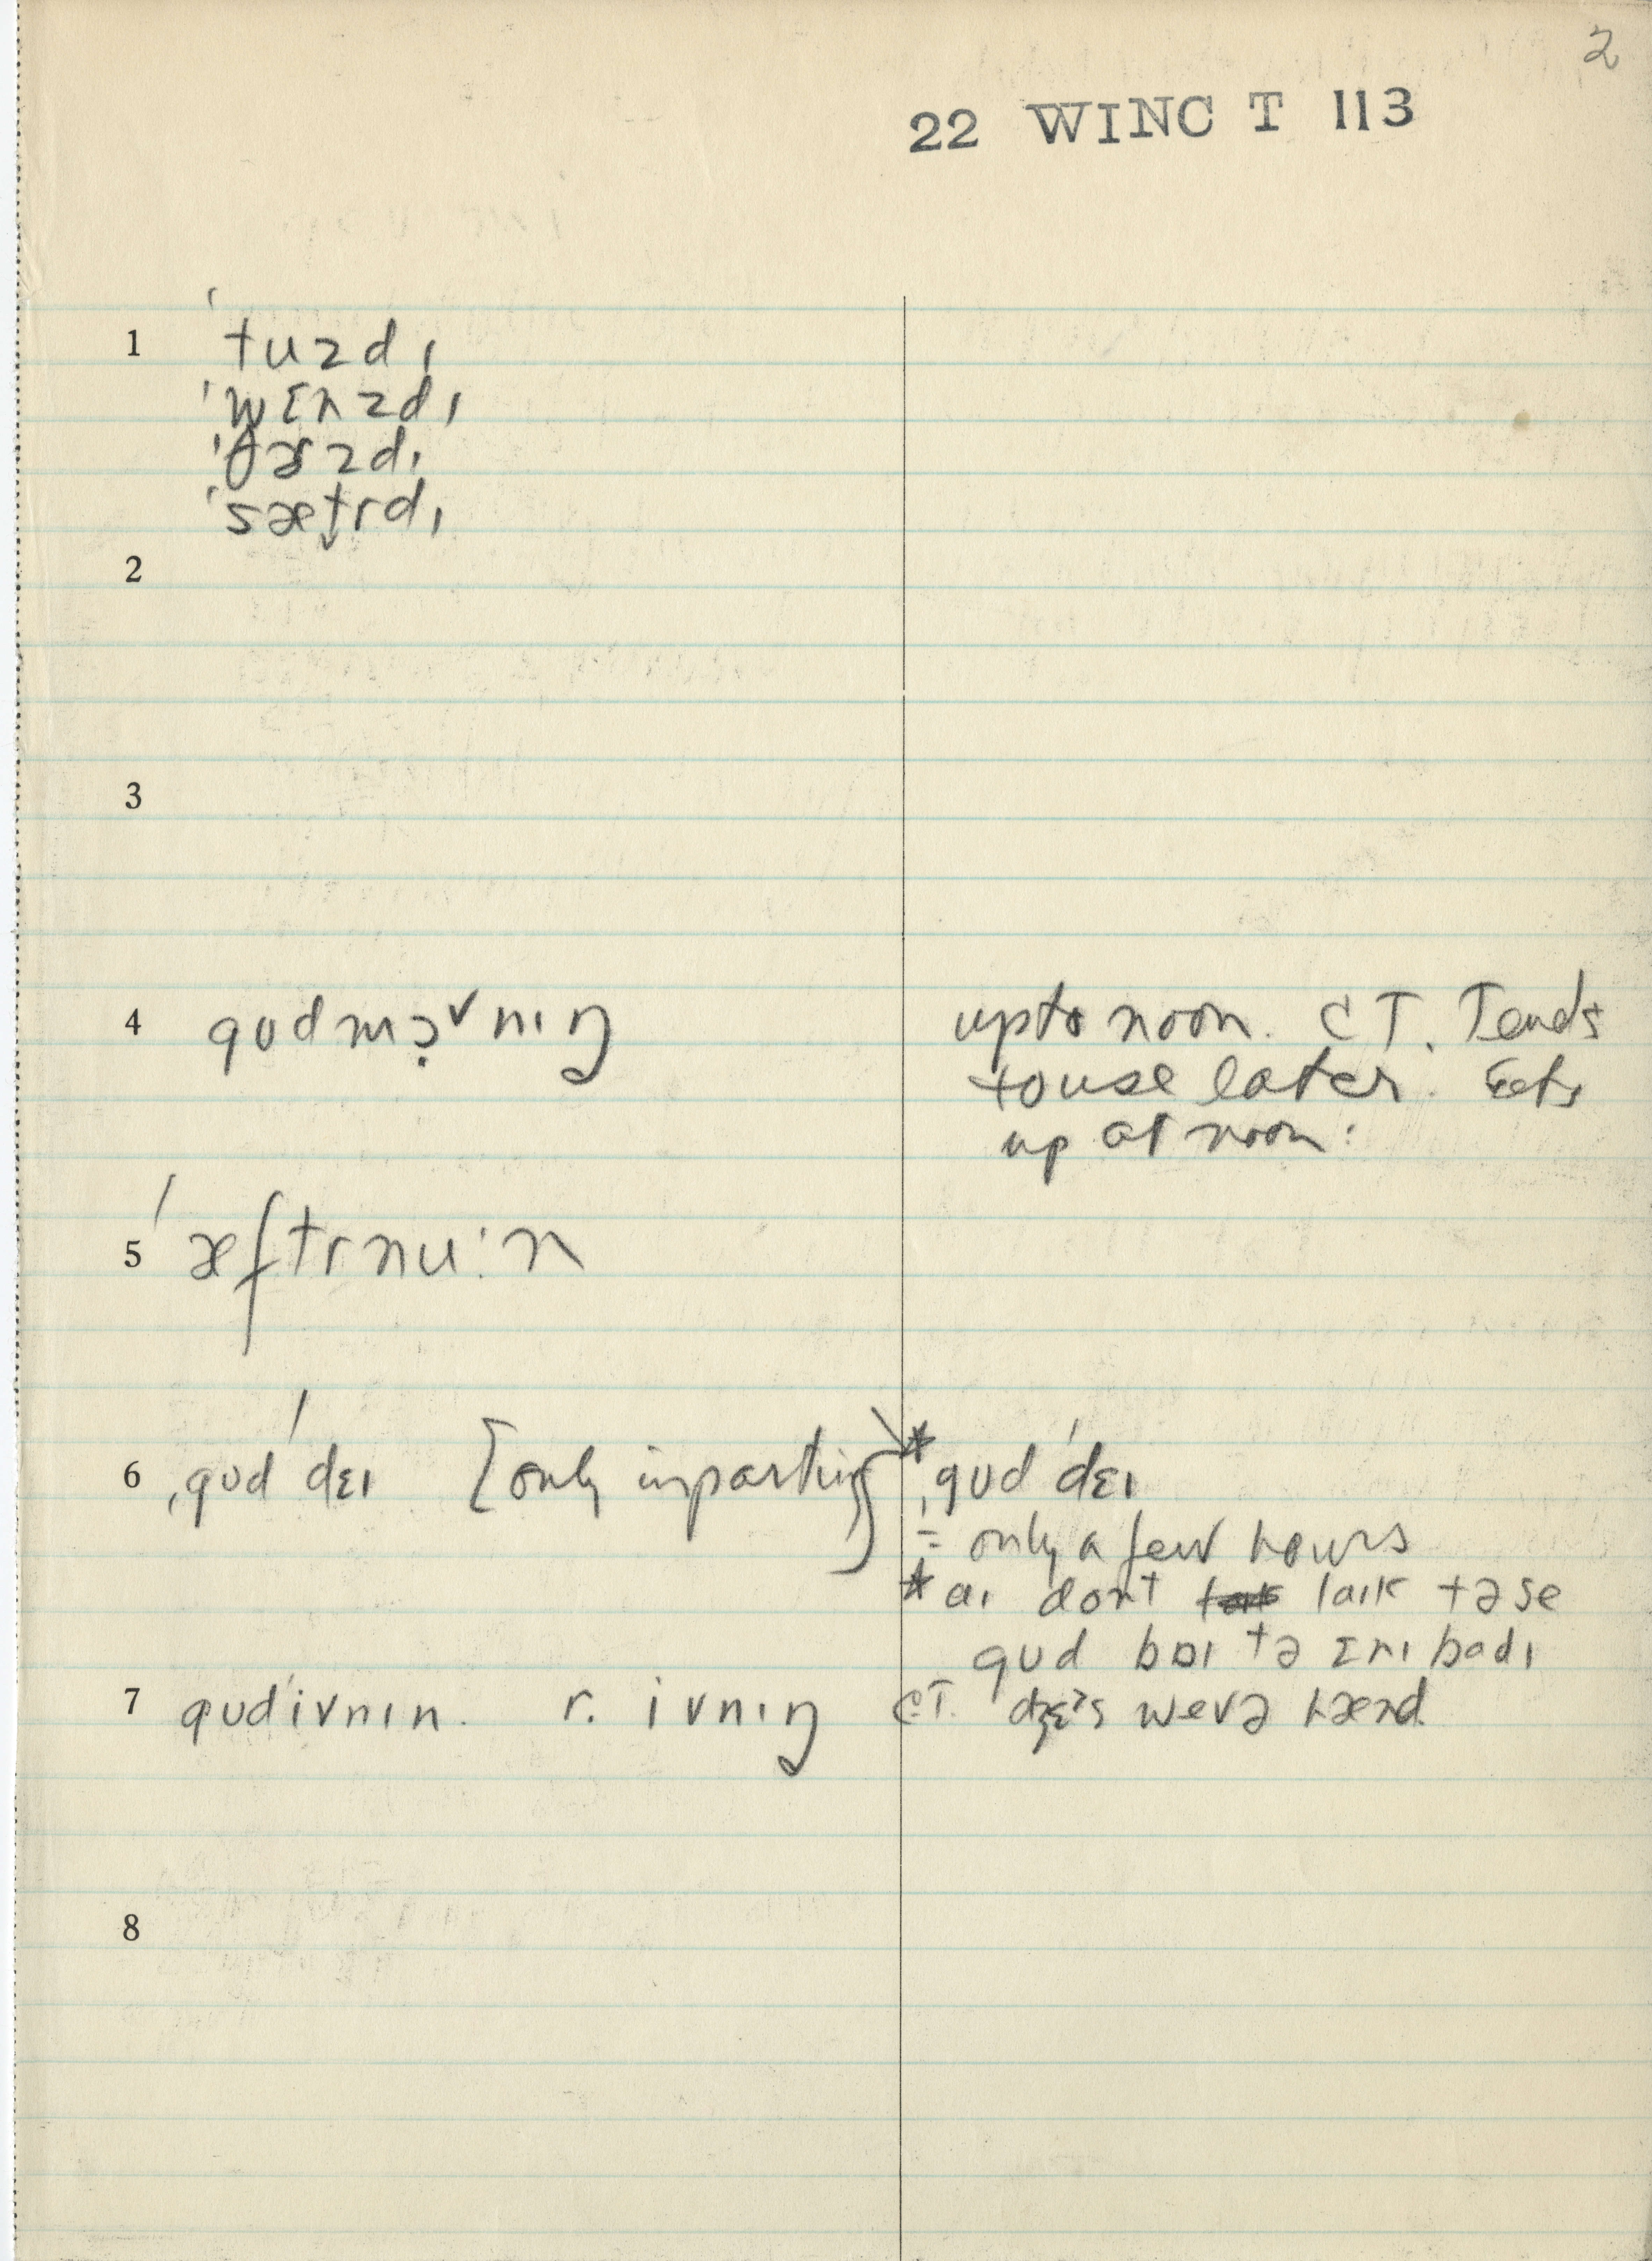 2
22 WINC T 113
1 ˈtuzdɪ
ˈwɛnzdɪ
ˈθɝzdɪ
ˈsæt̬rdɪ
2
3
4 gʊdmɔ̣ˇnɪŋ upto noon. CT. Tends
to use later. Gets
up at noon.
5 ˈæftrnu:n
6 ˌgʊdˈdɛɪ [only in parting] * ˌgʊdˈdɛɪ
= only a few hours
* aɪ dont laɪk tə se
gʊd baɪ tə ɛnɪ badɪ
7 gʊdˈivnɪn. r. ivnɪŋ C.T. dʒɛs wevə hænd
8